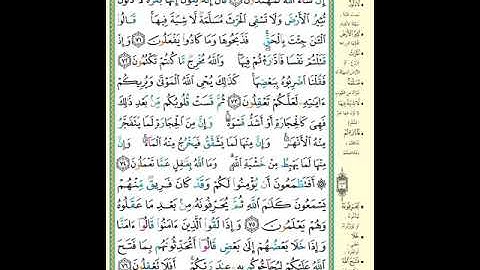 إِن شَآءَ ٱللَّهُ لَمُهْتَدُونَ ﴿٧٠﴾ قَالَ إِنَّهُۥ يَقُولُ إِنَّهَا بَقَرَةٌ لَّا ذَلُولٌ
تُثِيرُ ٱلْأَرْضَ وَلَا تَسْقِى ٱلْحَرْثَ مُسَلَّمَةٌ لَّا شِيَةَ فِيهَا ۚ قَالُوا۟
ٱلْـَٰٔنَ جِئْتَ بِٱلْحَقِّ ۚ فَذَبَحُوهَا وَمَا كَادُوا۟ يَفْعَلُونَ ﴿٧١﴾ وَإِذْ
قَتَلْتُمْ نَفْسًا فَٱدَّٰرَْٰٔتُمْ فِيهَا ۖ وَٱللَّهُ مُخْرِجٌ مَّا كُنتُمْ تَكْتُمُونَ ﴿٧٢﴾
فَقُلْنَا ٱضْرِبُوهُ بِبَعْضِهَا ۚ كَذَٰلِكَ يُحْىِ ٱللَّهُ ٱلْمَوْتَىٰ وَيُرِيكُمْ
ءَايَٰتِهِۦ لَعَلَّكُمْ تَعْقِلُونَ ﴿٧٣﴾ ثُمَّ قَسَتْ قُلُوبُكُم مِّنۢ بَعْدِ ذَٰلِكَ
فَهِىَ كَٱلْحِجَارَةِ أَوْ أَشَدُّ قَسْوَةً ۚ وَإِنَّ مِنَ ٱلْحِجَارَةِ لَمَا يَتَفَجَّرُ
مِنْهُ ٱلْأَنْهَٰرُ ۚ وَإِنَّ مِنْهَا لَمَا يَشَّقَّقُ فَيَخْرُجُ مِنْهُ ٱلْمَآءُ ۚ وَإِنَّ
مِنْهَا لَمَا يَهْبِطُ مِنْ خَشْيَةِ ٱللَّهِ ۗ وَمَا ٱللَّهُ بِغَٰفِلٍ عَمَّا تَعْمَلُونَ ﴿٧٤﴾
۞ أَفَتَطْمَعُونَ أَن يُؤْمِنُوا۟ لَكُمْ وَقَدْ كَانَ فَرِيقٌ مِّنْهُمْ
يَسْمَعُونَ كَلَٰمَ ٱللَّهِ ثُمَّ يُحَرِّفُونَهُۥ مِنۢ بَعْدِ مَا عَقَلُوهُ
وَهُمْ يَعْلَمُونَ ﴿٧٥﴾ وَإِذَا لَقُوا۟ ٱلَّذِينَ ءَامَنُوا۟ قَالُوٓا۟ ءَامَنَّا
وَإِذَا خَلَا بَعْضُهُمْ إِلَىٰ بَعْضٍ قَالُوٓا۟ أَتُحَدِّثُونَهُم بِمَا فَتَحَ
ٱللَّهُ عَلَيْكُمْ لِيُحَآجُّوكُم بِهِۦ عِندَ رَبِّكُمْ ۚ أَفَلَا تَعْقِلُونَ ﴿٧٦﴾